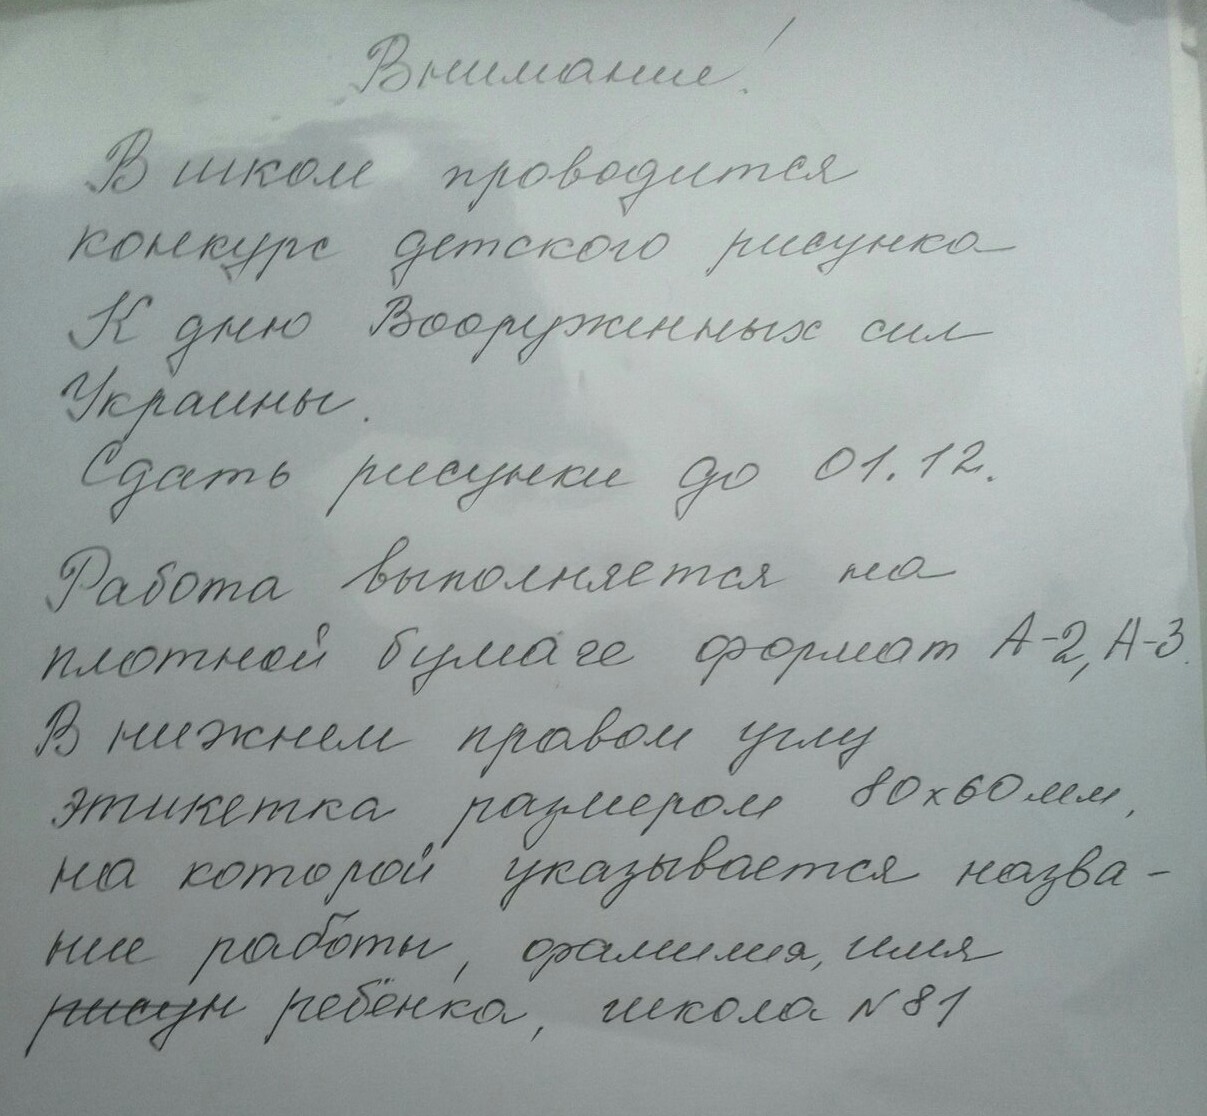 Внимание!
В школе проводится
конкурс детского рисунка
К дню Вооруженных сил
Украины.
Сдать рисунки до 01.12.
Работа выполняется на
плотной бумаге формат А-2, А-3.
В нижнем правом углу
этикетка размером 80х60мм,
на которой указывается назва-
ние работы, фамилия, имя
рисун ребёнка, школа №81